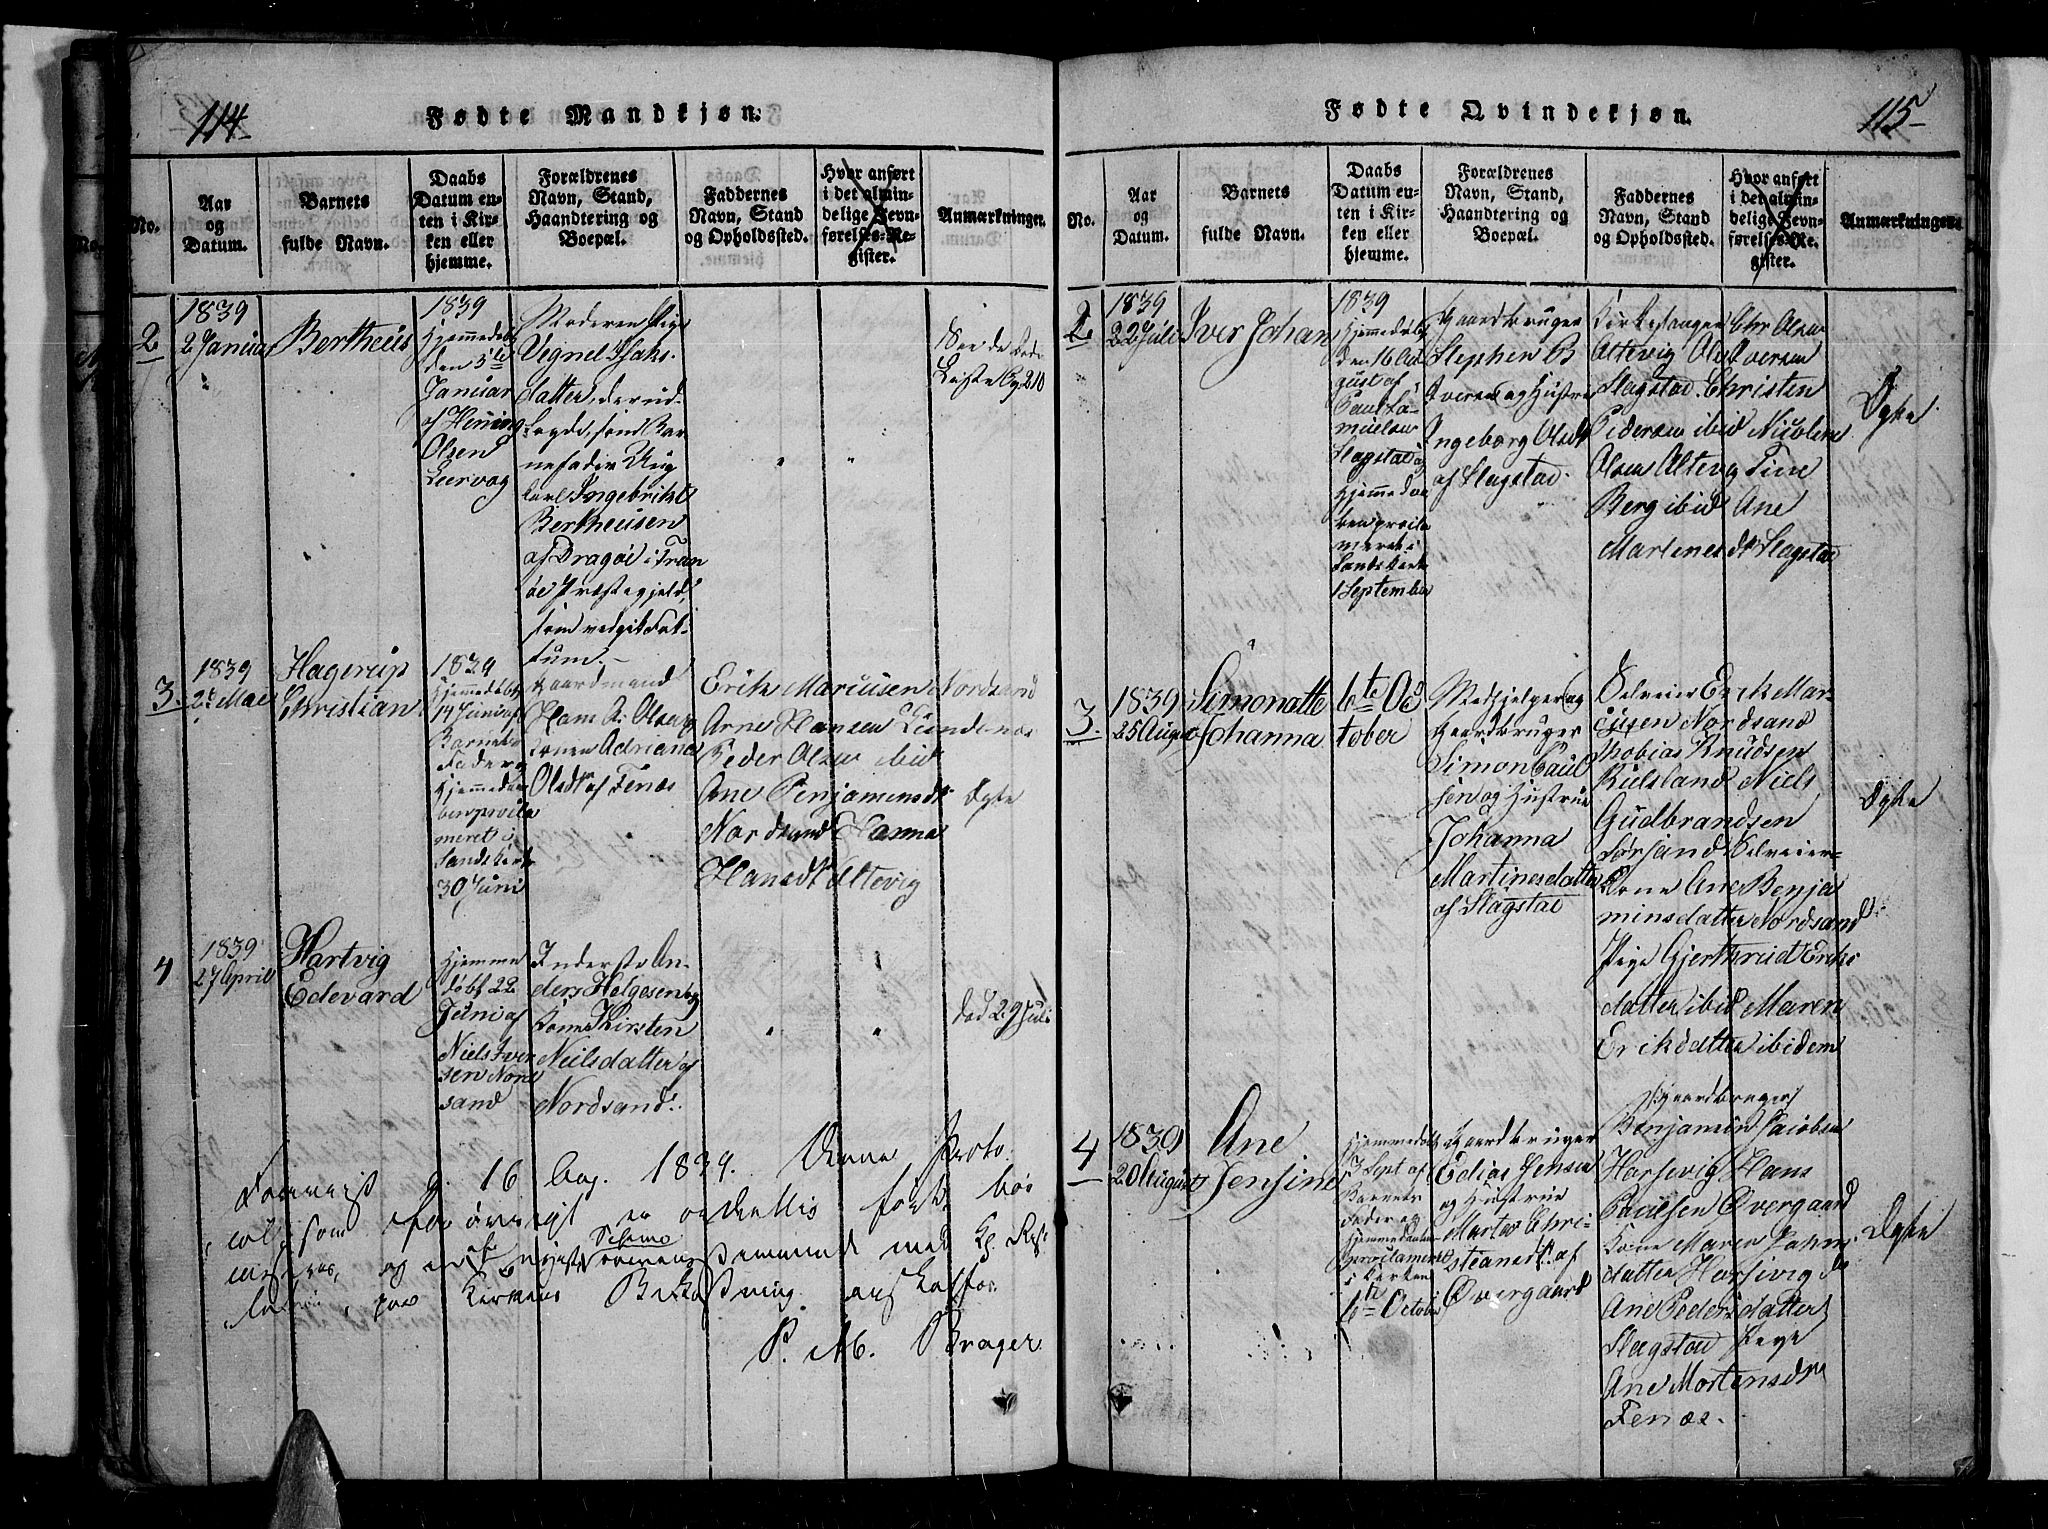 114
Fødte Mandkjøn.
No.
Aar
og
Datum.
Barnets
fulde Navn.
Daabs
Datum en-
ten i Kir-
ken eller
hjemme.
Forældrenes
Navn, Stand,
Haandtering og
Boepæl.
Faddernes
Navn, Stand
og Opholdssted.
Hvor anført
i det almin-
delige Jevn-
førelses-Re-
gister.
Anmærkninger.
2
1839
2 Januar
Bertheus
1839
Hjemmedøbt
den 3die
Januar
af Hening
Olsen
Leervog
Moderen Pige
Vegnel Isaks-
datter, der ud-
lagde, som Bar-
nefader Ung
karl Ingebrikt
Bertheusen
af Dragøe i Tran
øe Præstegjeld,
som vedgik Fak-
tum.
See de Døde
Liste Pag 210
3.
1839
2d Mai
Hagerup
Christian
1839
Hjemmedøbt
14 Juni af
Barnets
Fader og
Hjemmedaa
ben procla
meret i
Sandskirke
30 Juni
Gaardmand
Hans A. Olsen
Konen Adriana
Olsdtr af Fenæs
Erik Mariusen Nordsand
Arne Hansen Lundenæs
Peder Olsen ibid
Ane Benjaminsdtr
Nordsand Hanna
Hansdtr Altevig
Ægte
4
1839
27 April
Hartvig
Edevard
Hjemme
døbt 22
Juni af
Niels Iver
sen Nord
sand
Inderst An-
ders Helgesen og
Kone Kirsten
Nielsdatter af
Nordsand.
død 29 Juli
16 Aug. 1839.
Kirkens Bekostning anskaffes.
P. M. Brager
115
Fødte Qvindekjøn.
No.
Aar
og
Datum.
Barnets
fulde Navn.
Daabs
Datum en-
ten i Kir-
ken eller
hjemme.
Forældrenes
Navn, Stand,
Haandtering og
Boepæl.
Faddernes
Navn, Stand
og Opholdssted.
Hvor anført
i det almin-
delige Jevn-
førelses-Re-
gister.
Anmærkninger.
2
1839
22 Juli
Iver Johan
1839
Hjemmedøbt
den 16 Au
gust af
Paul Sa-
muelsen
Slagstad og
Hjemmedaa
ben procla
meret i
Sandskirke
1 September
Gaardbruger
Stephen B
Iversen og Hustrue
Ingeborg Olsdtr
af Slagstad.
Kirkesanger Chr Olsen
Altevig Ole Iversen
Slagstad Christen
Pedersen ibid Nicolene
Olsen Altevig Tine
Berg ibid Ane
Martenesdtr Slagstad
Ægte
3.
1839
25 August
Simonatte
Johanna
6te Oc
tober
Medhjelper og
Gaardbruger
Simon Paul
sen og Hustrue
Johanna
Martinesdatter
af Slagstad
Selveier Erik Mar-
iusen Nordsand
Thobias Knudsen
Niels
Gudbrandsen
Sørsand Selveier-
Kone Ane Benja
minsdatter Nordsand
Pige Gjerthrud Eriks
datter ibid Maren
Eriksdatter ibidem
Ægte
4
1839
20 August
Ane
Jensine
Hjemmedøbt
7 Sept af
Barnets
Fader og
Hjemmedaaben
proclameret
i Kirken
6te October
Gaardbruger
Edias Jensen
og Hustrue
Marta Chri-
stiansdtr. af
Øvergaard
Gaardbruger
Benjamin Jacobsen
Horsevig Hans
Paulsen Øvergaard
Kone Maren Johns
datter Horsevig do
Ane Pedersdatter
Slagstad Pige
Ane Mortensdtr
Fenæs.
Ægte